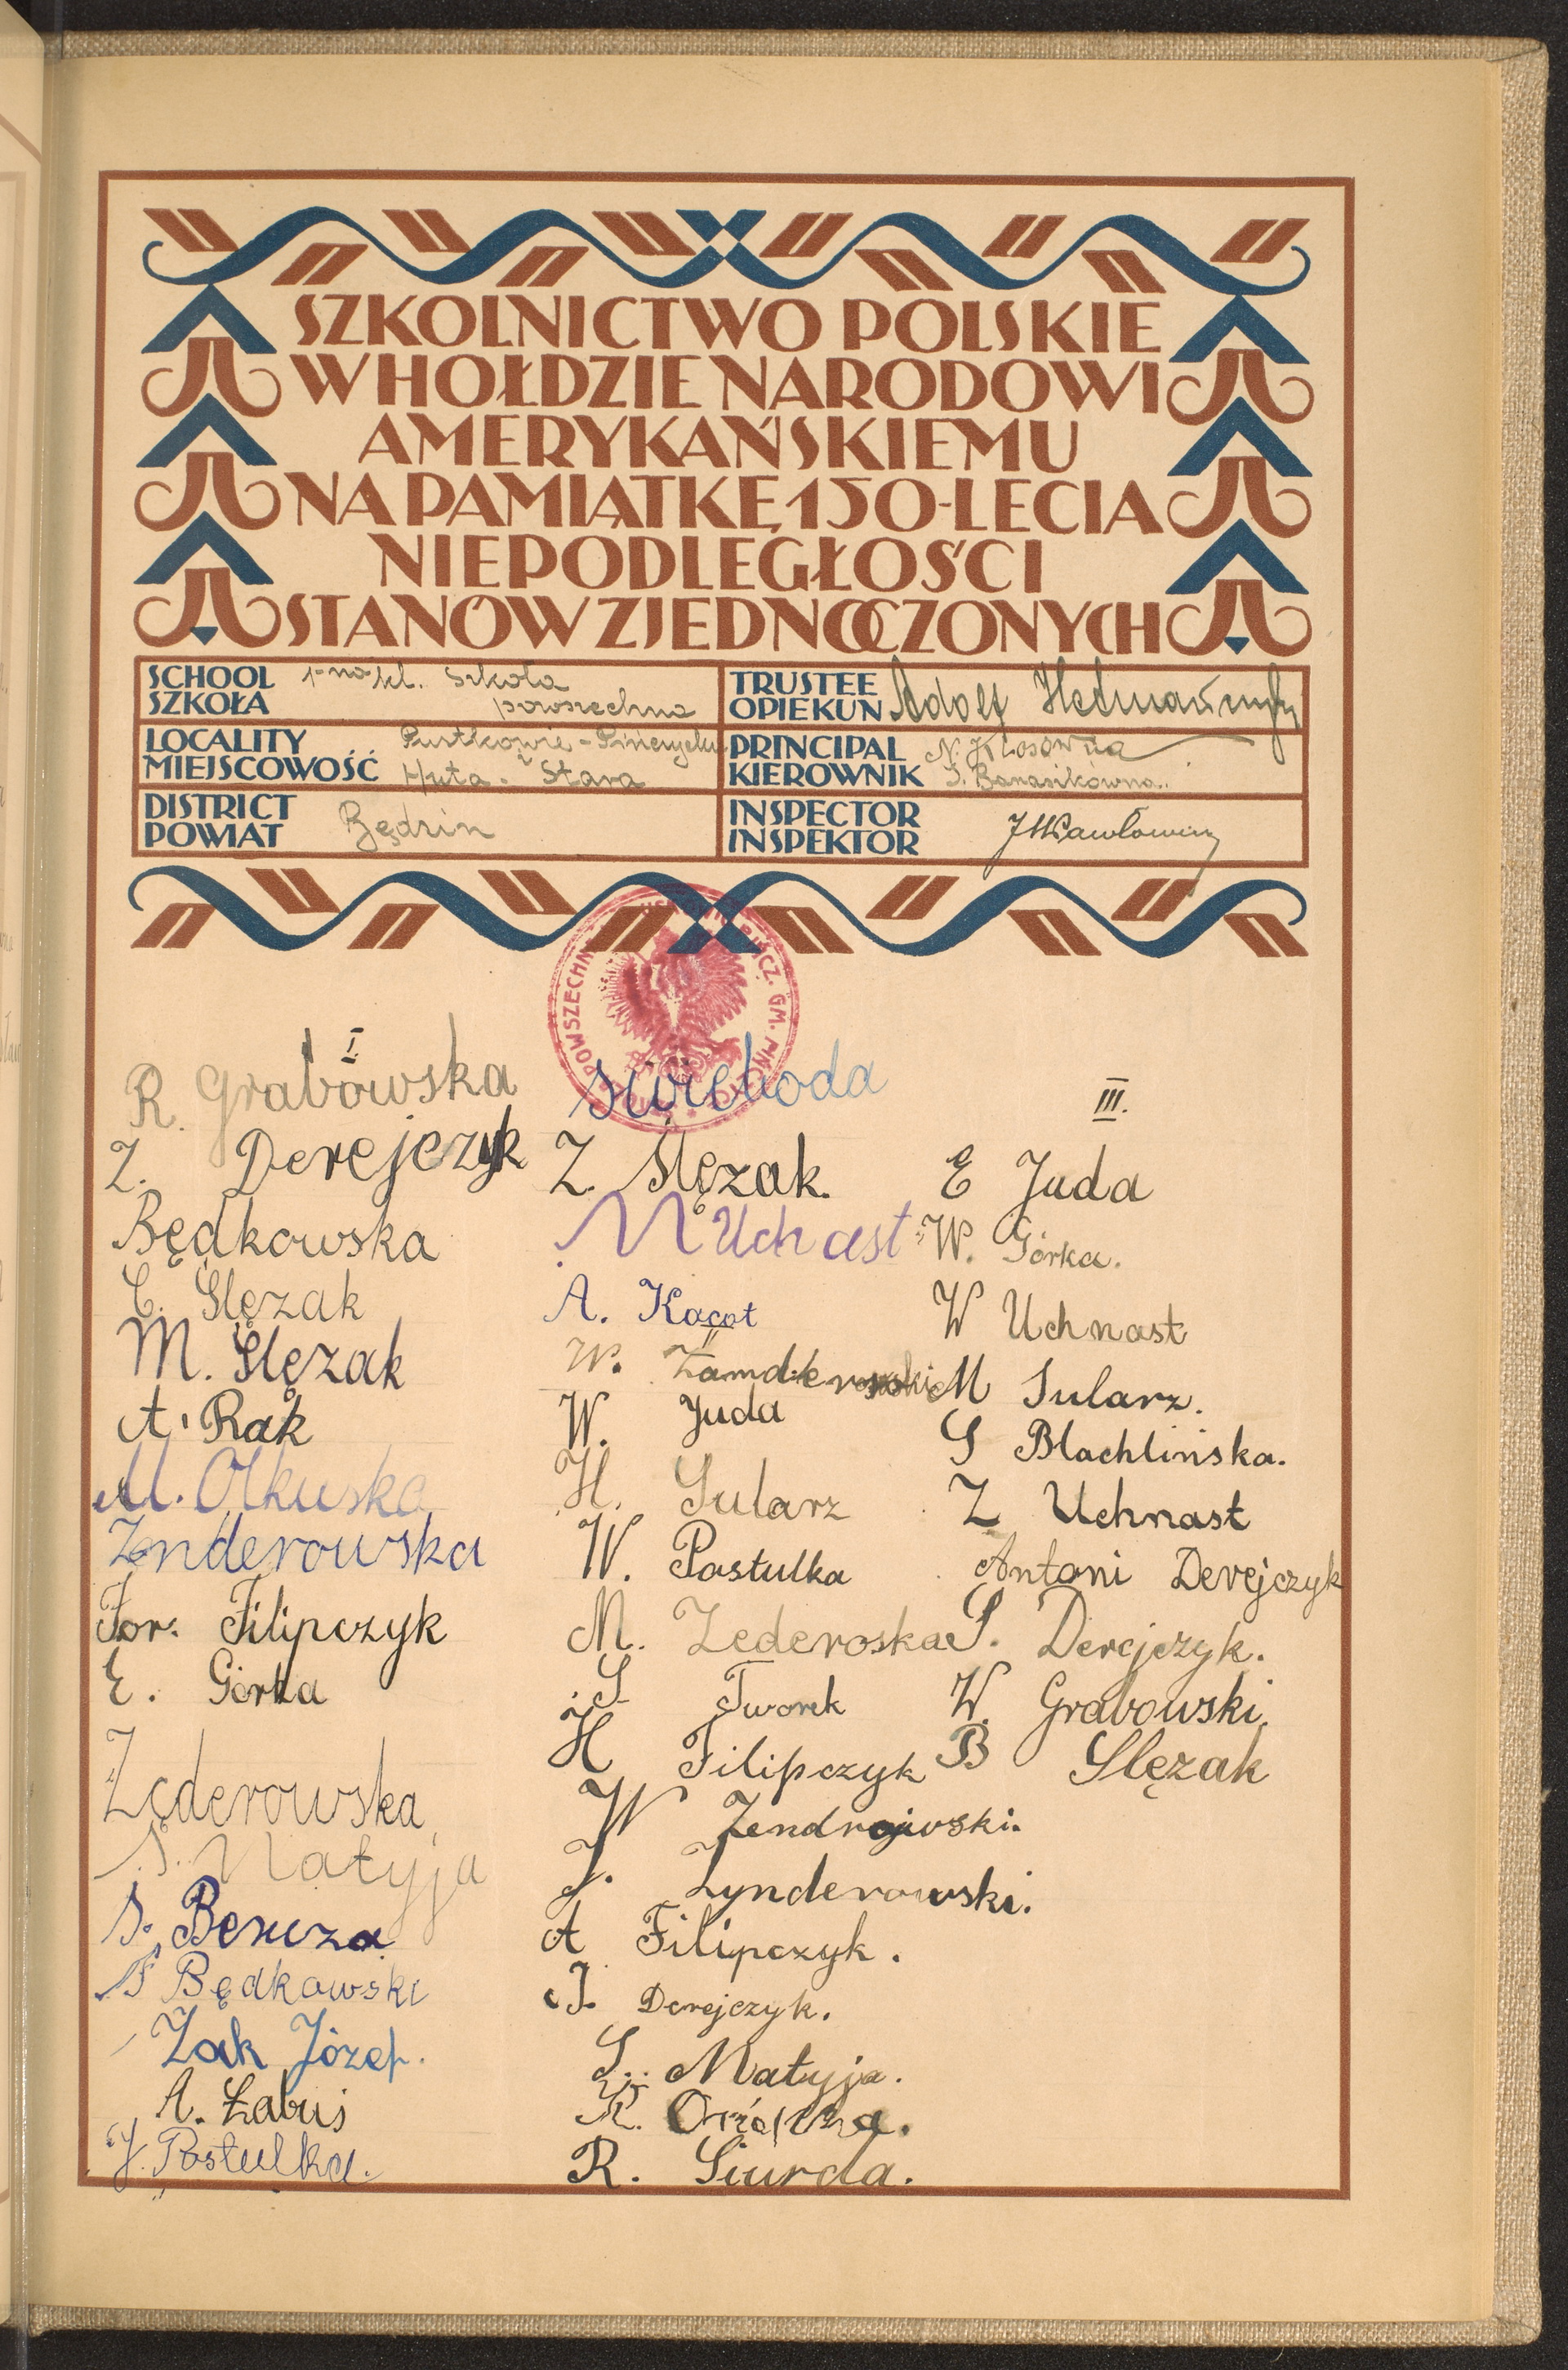 SZKOLNICTWO POLSKIE
W HOŁDZIE NARODOWI
AMERYKAŃSKIEMU
NA PAMIĄTKĘ 150-LECIA
NIEPODLEGŁOŚCI
STANÓW ZJEDNOCZONYCH
SCHOOL
SZKOŁA
1-no kl. Szkoła
powszechna
TRUSTEE
OPIEKUN
Adolf
LOCALITY
MIEJSCOWOŚĆ
Pustkowie
Huta - Stara
PRINCIPAL
KIEROWNIK
N. Kłosówna
S. Banasikówna.
DISTRICT
POWIAT
Będzin
INSPECTOR
INSPEKTOR
POWSZECHN GM.
I.
R. Grabowska
Z. Derejczyk
Będkowska
C. Ślęzak
M. Ślęzak
A. Rak
M. Olkuska
Zenderowska
For. Filipczyk
E. Górka
Zęderowska
S. Matyja
S. Bencza
F Będkowski
Żak Józef.
A. Łabuś
J. Postulka.
Świeboda
Z. Ślęzak.
M Uchast
A. Kacot
II
W.
W. Juda
H. Sularz
W. Pastulka
M. Zederoska
S Tworek
H Filipczyk
W Zendrowski.
J. Zynderowski.
A Filipczyk.
J. Derejczyk.
S. Matyja.
R.
R. Siurda.
III.
E Juda
W. Górka.
W Uchnast
M Sularz.
S Blachlińska.
Z Uchnast
Antoni Derejczyk
S. Derejczyk.
W. Grabowski
B Slęzak